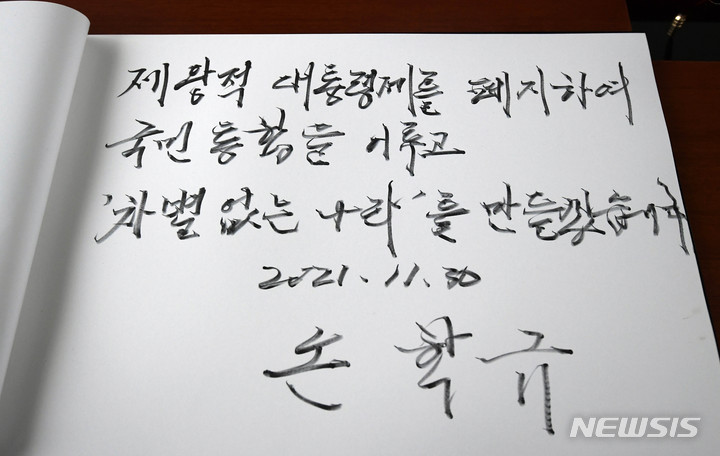 제왕적 대통령제를 폐지하여
국민통합을 이루고
'차별 없는 나라'를 만들겠습니다
2021. 11. 30
손학규
NEWSIS